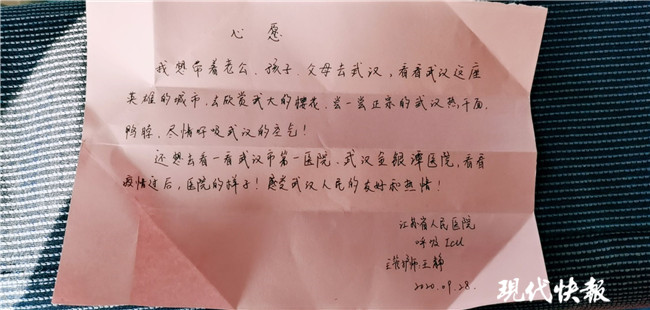 心愿
我想带着老公、孩子、父母去武汉，看看武汉这座
英雄的城市，去欣赏武大的樱花，尝一尝正宗的武汉热干面、
鸭脖，尽情呼吸武汉的空气！
还想去看一看武汉市第一医院、武汉金银潭医院，看看
疫情过后，医院的样子！感受武汉人民的友好和热情！
江苏省人民医院
呼吸ICU
主管护师 王静
2020.09.28.
现代快报